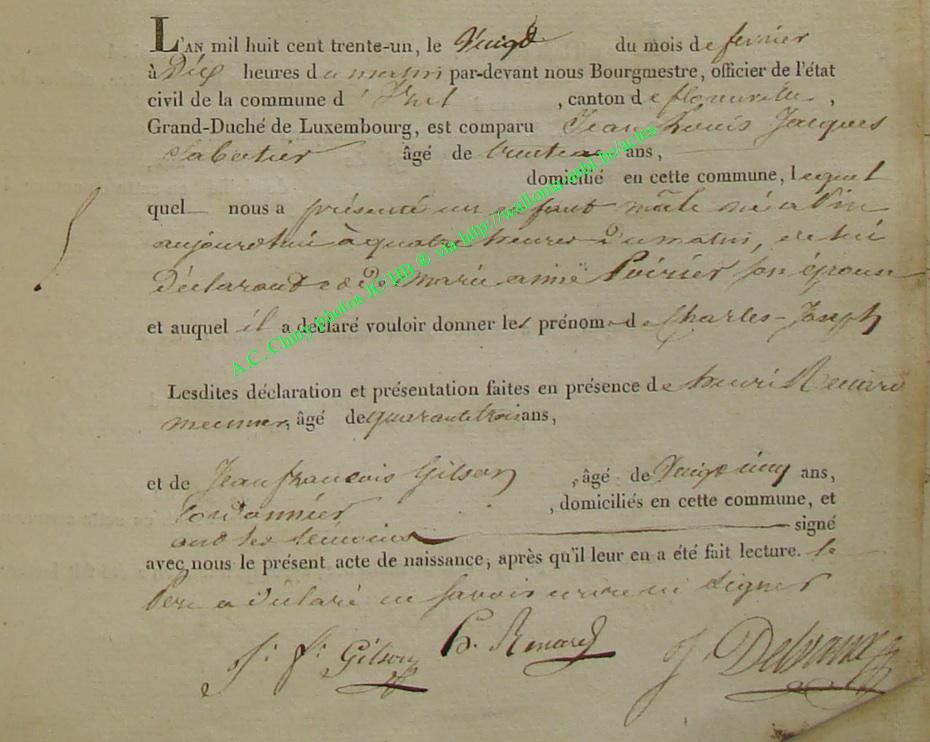 L'AN mil huit cent trente-un, le Vingt du mois de fevrier
à Dix heures du matin par-devant nous Bourgmestre, officier de l'état
civil de la commune d' , canton de florenville,
Grand-Duché de Luxembourg, est comparu Jean Louis Jacques
Sabatier âgé de trente ans,
domicilié en cette commune, lequel
quel nous a présenté un enfant mâle né a
aujourdhui à quatre heures du matin, de lui
déclarant et de marie anne Poirier son épouse
et auquel il a déclaré vouloir donner les prénoms de Charles-Joseph
Lesdites déclaration et présentation faites en présence de henri Renard
meunier, âgé de quarante trois ans,
et de Jean françois Gilson, âgé de Vingt cinq ans,
Cordonnier, domiciliés en cette commune, et
ont les témoins signé
avec nous le présent acte de naissance, après qu'il leur en a été fait lecture. le
Pere a déclaré ne savoir ecrire ni signer
J. f. Gilson H. Renard J Delvaux
A.C. Chiny photos JCHB ® via http://wallonia.asbl.be/actes